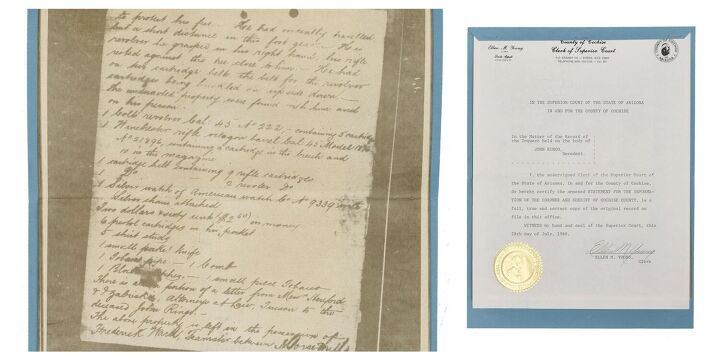 to protect his feet – He had evidently travelled
but a short distance in this foot gear – His
revolver he grasped in his right hand, his rifle
rested against the tree close to him – He had
on two cartridge belts the belt for the revolver
cartridges being buckled on upside down –
The undernoted property were found with him and
on his person.
1 Colts revolver Cal. 45 No 222, – containing 5 cartridges
1 Winchester rifle octagon barrel Cal 45 Model 1876
No 21896, containing a cartridge in the breech and
in the magazine
1 cartridge belt containing 9 rifle cartridges
1 do 2 revolver do
1 Silver watch of American watch Co No 9339 with
silver chain attached
Two dollars & sixty cents ($2 60) in money
6 pistol cartridges in his pocket
5 shirt studs
1 small pocket knife
1 Tobacco pipe – 1 Comb
1 Block matches – 1 small piece Tobacco
There is also a portion of a letter from Messrs Hereford
& Zabriskie, Attorneys at Law, Tucson to the
deceased John Ringo. –
The above property is left in the possession of
Frederick Ward, Teamster between Morse Mill
County of Cochise
Ellen M. Young
Clerk of Superior Court
IN THE SUPERIOR COURT OF THE STATE OF ARIZONA
IN AND FOR THE COUNTY OF COCHISE
In the Matter of the Record of
the Inquest held on the body of
JOHN RINGO,
Decedent.
I, the undersigned Clerk of the Superior Court of
the State of Arizona, in and for the County of Cochise,
do hereby certify the annexed STATEMENT FOR THE INFORMA-
TION OF THE CORONER AND SHERIFF OF COCHISE COUNTY, is a
full, true and correct copy of the original record on
file in this office.
WITNESS my hand and seal of the Superior Court, this
Ellen M Young
ELLEN M. YOUNG,
Clerk